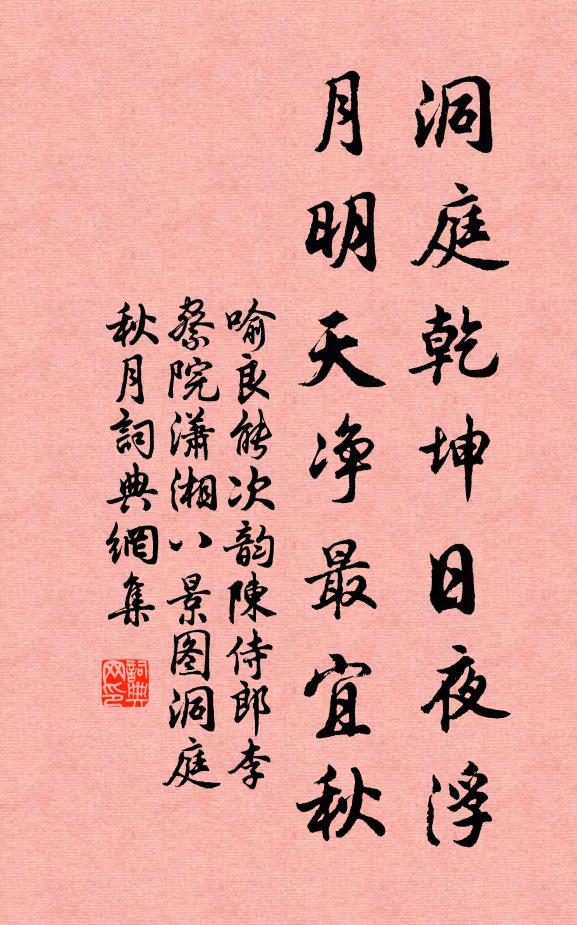 洞庭乾坤日夜浮
月明天净最宜秋
喻良能次韵陳侍郎李
察院潇湘八景图洞庭
秋月詞典網集
詞典
网印